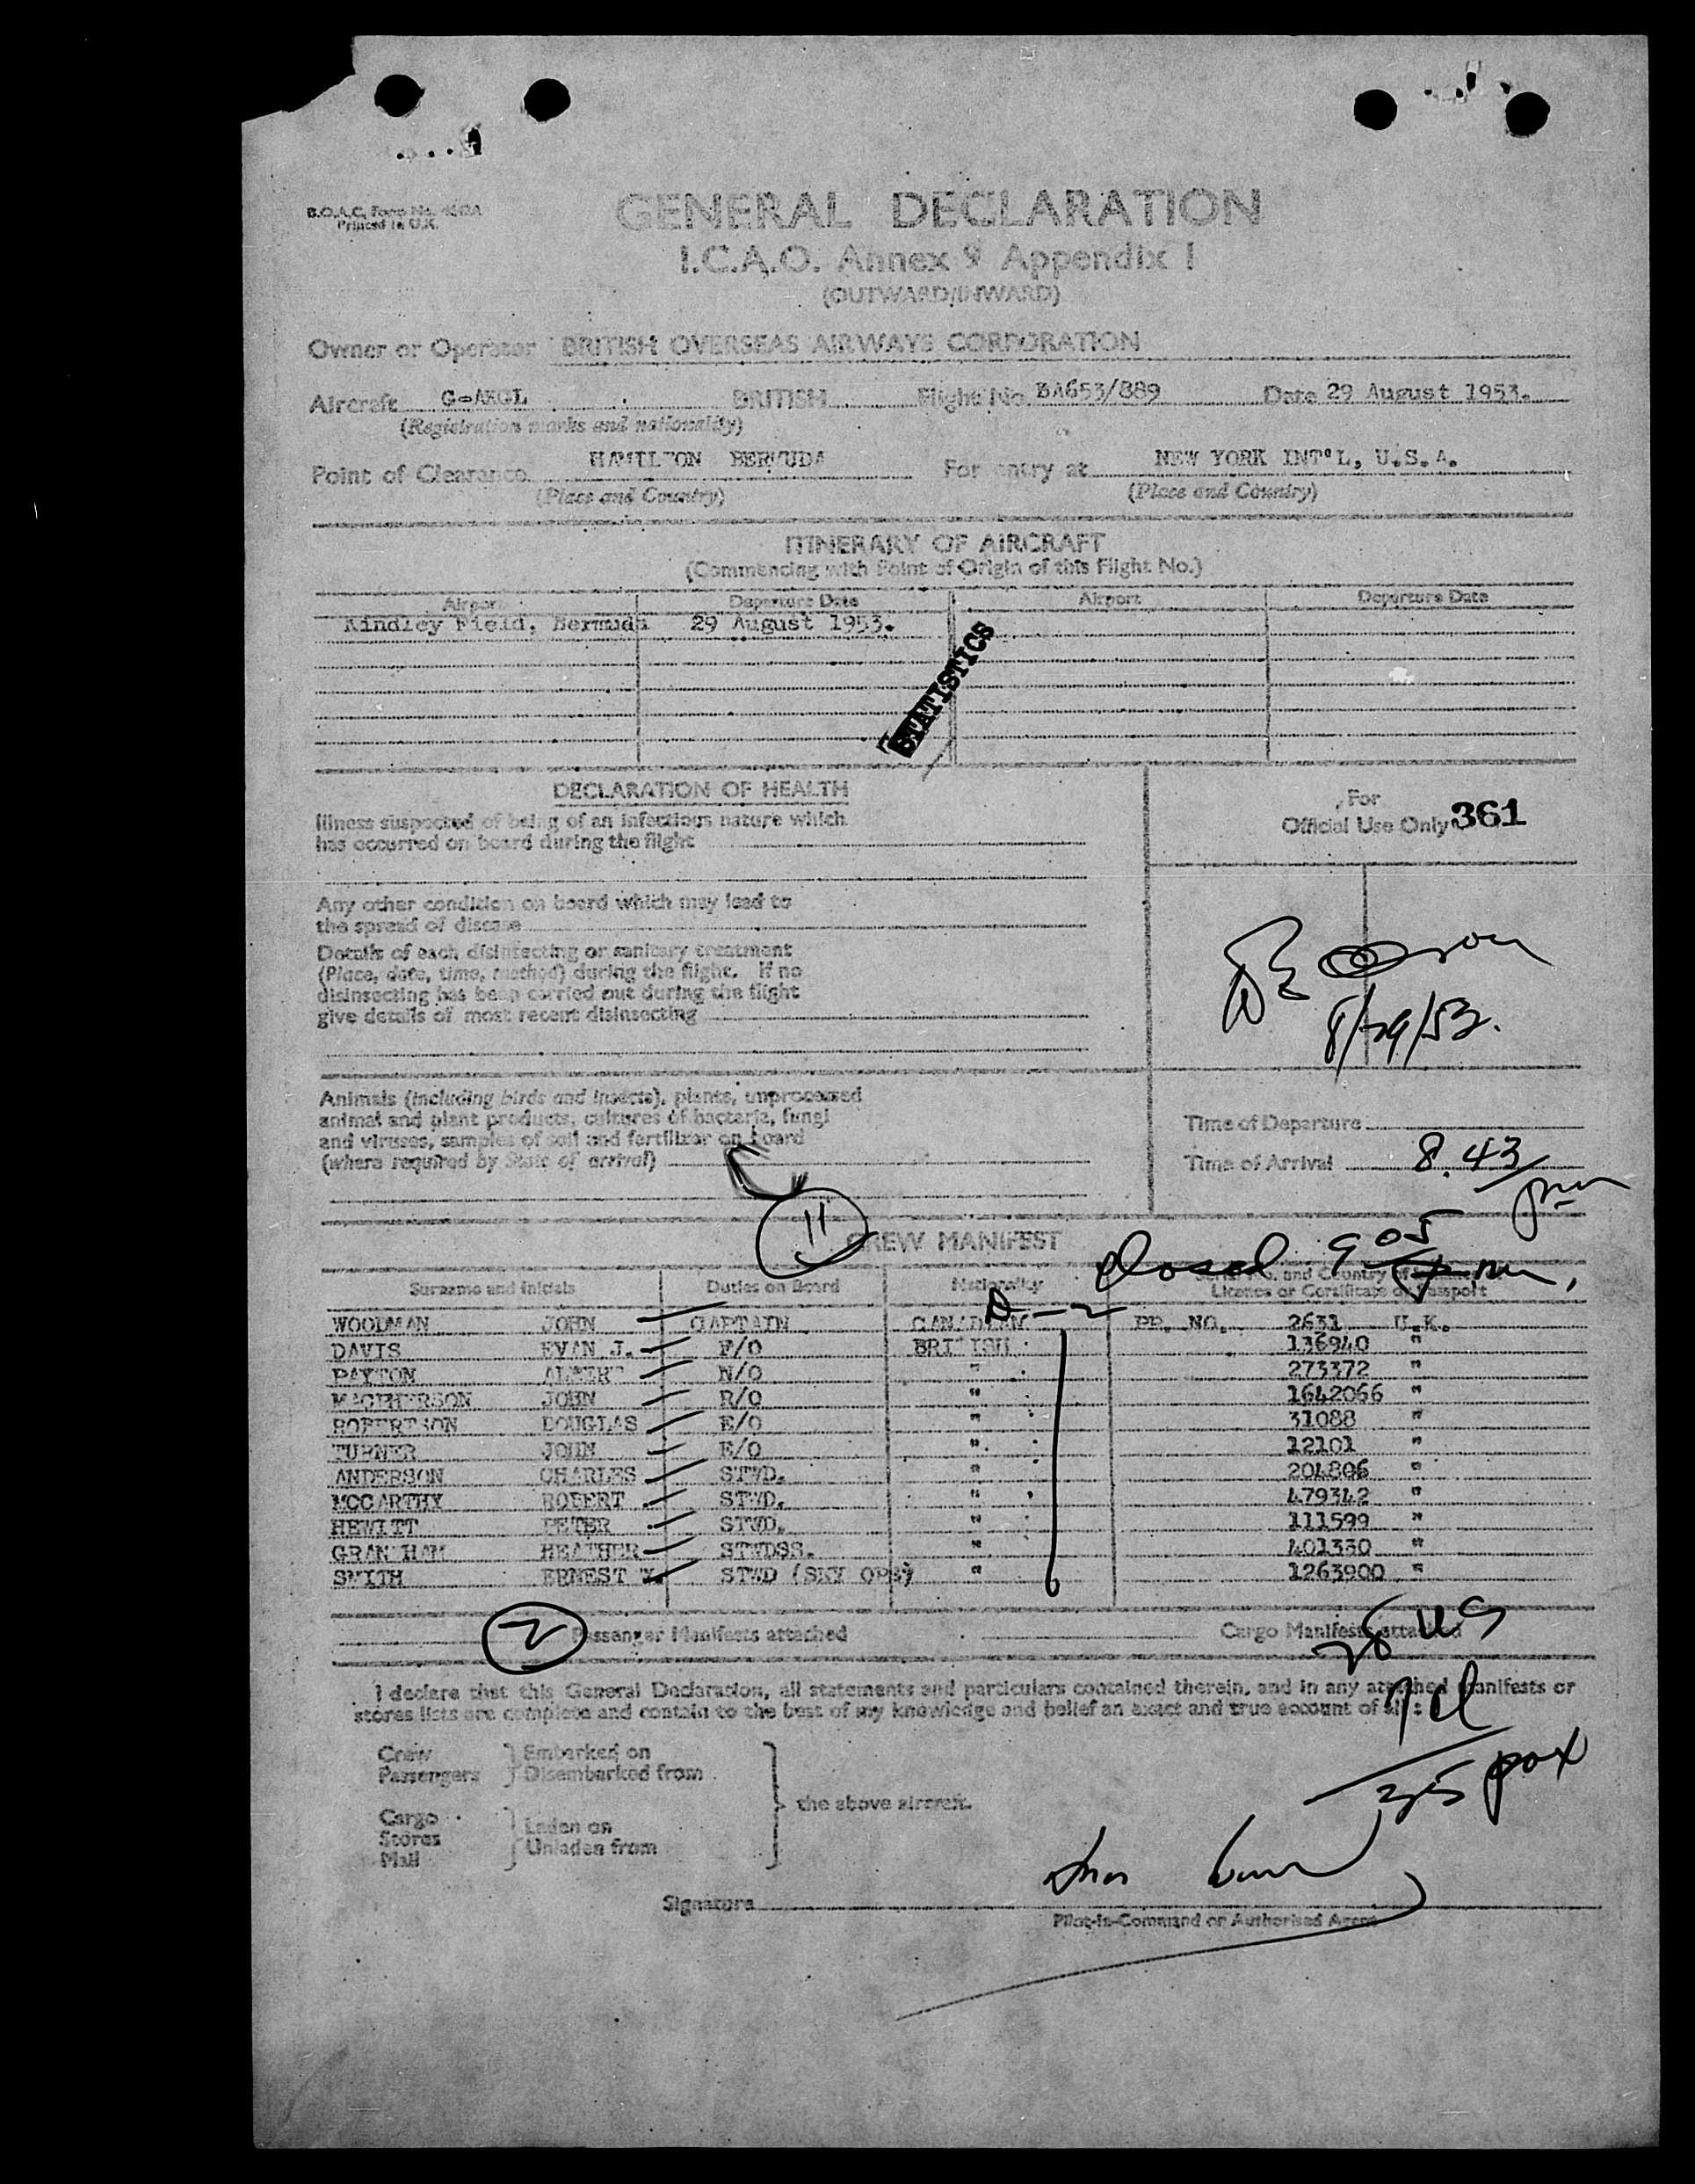 B.O.A.C. Form No.
Printed in U.K.
GENERAL DECLARATION
I.C.A.O. Annex 9 Appendix I
(OUTWARD/INWARD)
Owner or Operator BRITISH OVERSEAS AIRWAYS CORPORATION
Aircraft BRITISH Flight No. BA653/889 Date 29 August 1953.
(Registration marks and nationality)
Point of Clearance HAMILTON BERMUDA For entry at NEW YORK INT'L, U.S.A.
(Place and Country) (Place and Country)
ITINERARY OF AIRCRAFT
(Commencing with Point of Origin of this Flight No.)
Airport Departure Date Airport Departure Date
Kindley Field, Bermuda 29 August 1953.
STATISTICS
DECLARATION OF HEALTH
Illness suspected of being of an infectious nature which
has occurred on board during the flight
For
Official Use Only 361
Any other condition on board which may lead to
the spread of disease
Details of each disinsecting or sanitary treatment
(Place, date, time, method) during the flight. If no
disinsecting has been carried out during the flight
give details of most recent disinsecting
8/29/53.
Animals (including birds and insects), plants, unprocessed
animal and plant products, cultures of bacteria, fungi
and viruses, samples of soil and fertilizer on board
(where required by State of arrival)
Time of Departure
Time of Arrival 8.43 pm
11
CREW MANIFEST
closed 9 05 pm.
Surname and Initials Duties on Board Nationality Serial No. and Country of
Licence or Certificate or Passport
D-2
WOODMAN JOHN CAPTAIN CANADIAN PP. NO. 2631 U.K.
DAVIS EVAN J. F/O BRITISH 136940 "
PAYTON ALBERT N/O " 273372 "
MACPHERSON JOHN R/O " 1642066 "
ROBERTSON DOUGLAS E/O " 31088 "
TURNER JOHN E/O " 12101 "
ANDERSON CHARLES STWD. " 204806 "
MCCARTHY ROBERT STWD. " 479342 "
HEWITT PETER STWD. " 111599 "
GRANTHAM HEATHER STWDSS. " 401330 "
SMITH ERNEST STWD (SKY OPS) " 1263900 "
2 Passenger Manifests attached Cargo Manifests attached
28 US
7 al
35 pax
I declare that this General Declaration, all statements and particulars contained therein, and in any attached manifests or
stores lists are complete and contain to the best of my knowledge and belief an exact and true account of all:
Crew
Passengers
Embarked on
Disembarked from
Cargo
Stores
Mail
Laden on
Unladen from
the above aircraft.
Signature
Pilot-in-Command or Authorised Agent